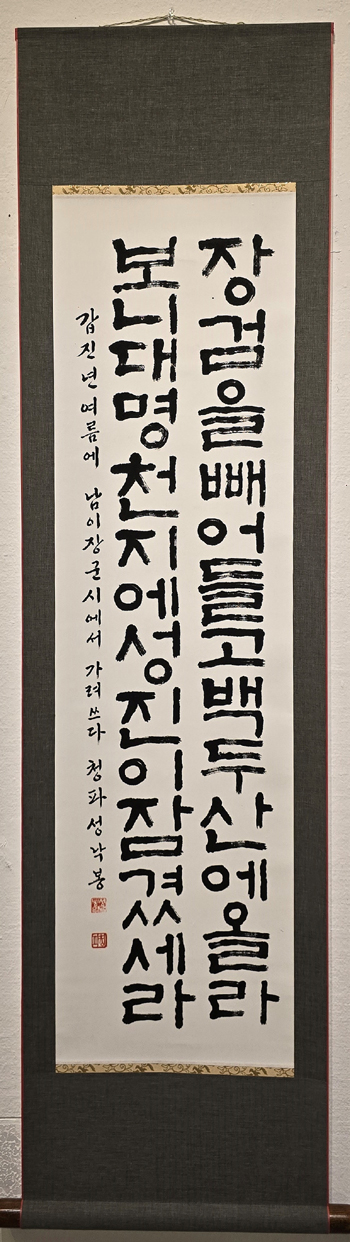 장검을빼어들고백두산에올라
보니대명천지에성진이잠겼세라
갑진년여름에 남이장군시에서 가려쓰다 청파성낙봉